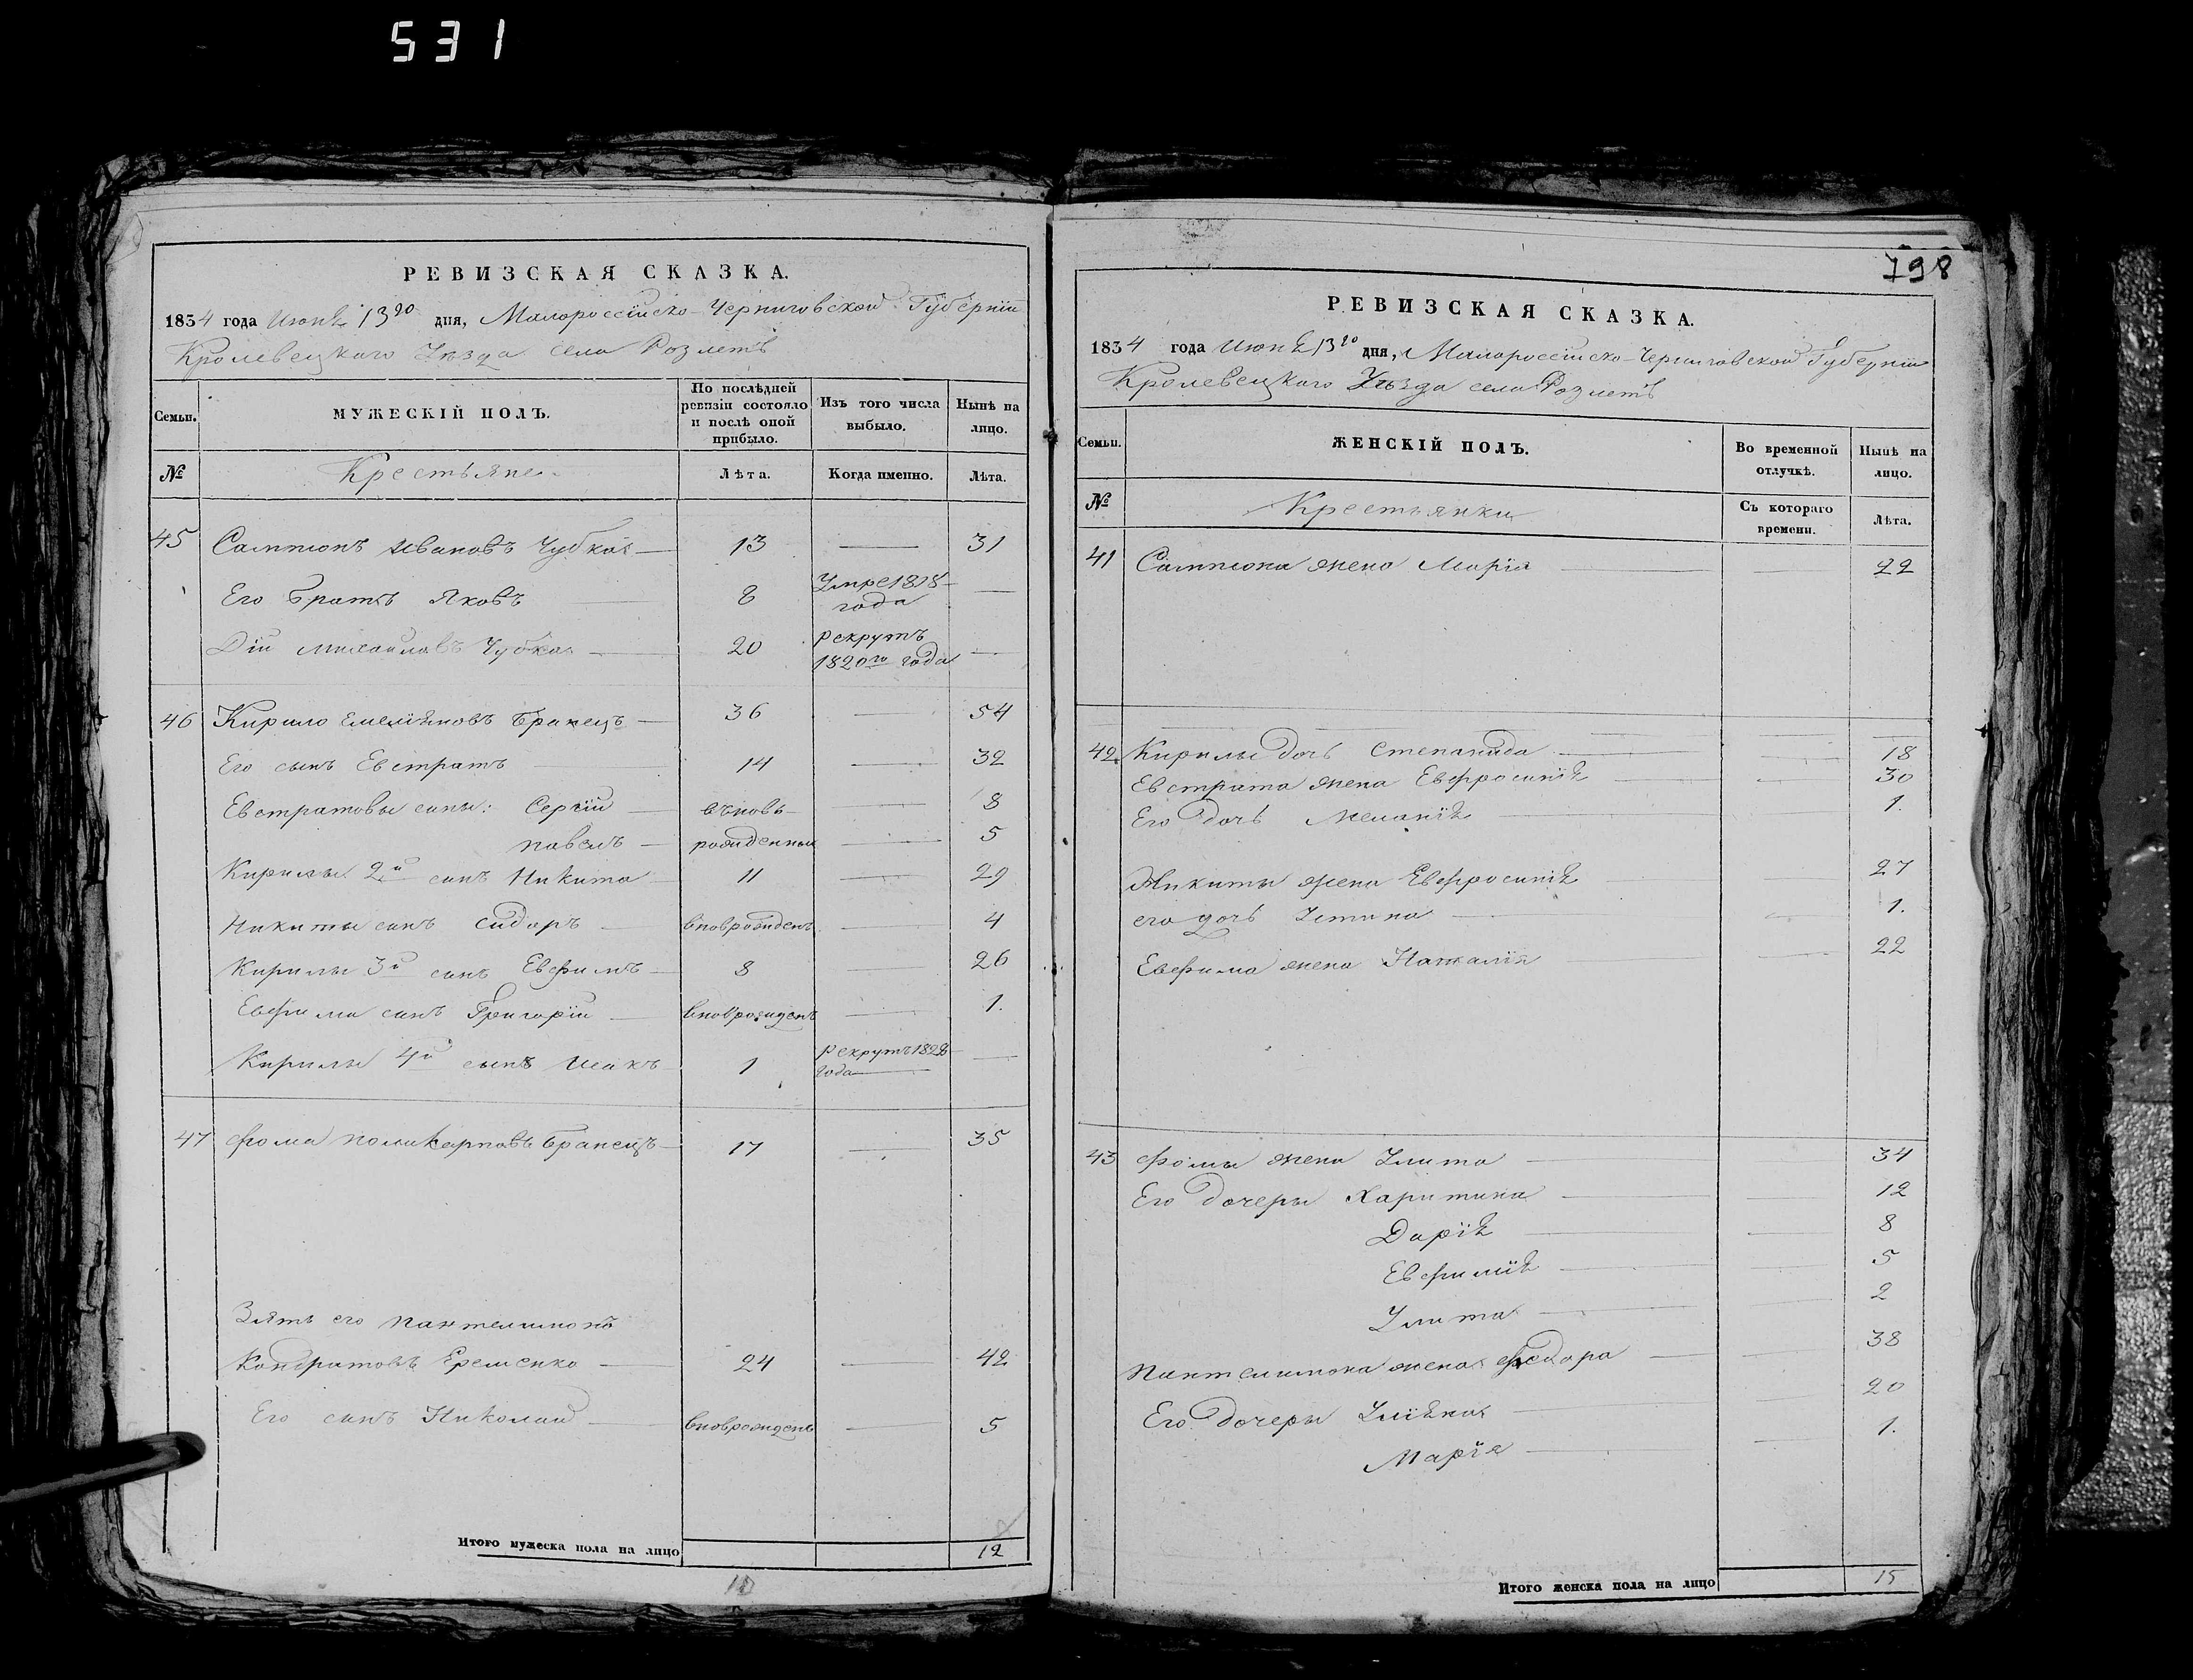 531
РЕВИЗСКАЯ СКАЗКА.
1834 года Июня 13го дня, Малороссійско-Черниговской Губерніи
Кролевецкаго Уѣзда села Розлетъ
Семьи. МУЖЕСКІЙ ПОЛЪ. По послѣдней ревизіи состояло и послѣ оной прибыло. Изъ того числа выбыло. Нынѣ на лицо.
№ Крестьяне Лѣта. Когда именно. Лѣта.
45 Сампсонъ Ивановъ Чубка 13 — 31
Его Братъ Яковъ 8 Умре 1818 года —
Михайловъ Чубка 20 рекрутъ 1820го года —
46 Кирило Емеліяновъ Бранецъ 36 — 54
Его сынъ Евстратъ 14 — 32
Евстратовы сины: Сергій вѣновь — 8
павелъ рожденныи — 5
Кирилы 2й синъ Никита 11 — 29
Никиты синъ Сидоръ вноврожденъ — 4
Кирилы 3й синъ Евфимъ 8 — 26
Евфима синъ Григорій вноврожденъ — 1.
Кирилы 4й сынъ Исакъ 1 рекрутъ 1828 года —
47 Фома поликарповъ Бранецъ 17 — 35
Зять его пантелимонъ
Кондратовъ Еременко 24 — 42
Его синъ Николай вноврожденъ — 5
Итого мужеска пола на лицо 12
798
РЕВИЗСКАЯ СКАЗКА.
1834 года Июня 13го дня, Малороссійско-Черниговской Губерніи
Кролевецкаго Уѣзда села Розлетъ
Семьи. ЖЕНСКІЙ ПОЛЪ. Во временной отлучкѣ. Нынѣ на лицо.
№ Крестьянки Съ котораго времени. Лѣта.
41 Сампсона жена Марія — 22
42 Кирилы дочь Степанида — 18
Евстрата жена Евфросинія — 30
Его дочь Меланія — 1.
Никиты жена Евфросинія — 27
его дочь Устина — 1.
Евфима жена Наталія — 22
43 Фомы жена Улита — 34
Его дочеры Харитина — 12
Дарія — 8
Евфимія — 5
Улита — 2
Пантелимона жена Федора — 38
Его дочеры Уліяна — 20
Марія — 1.
Итого женска пола на лицо 15